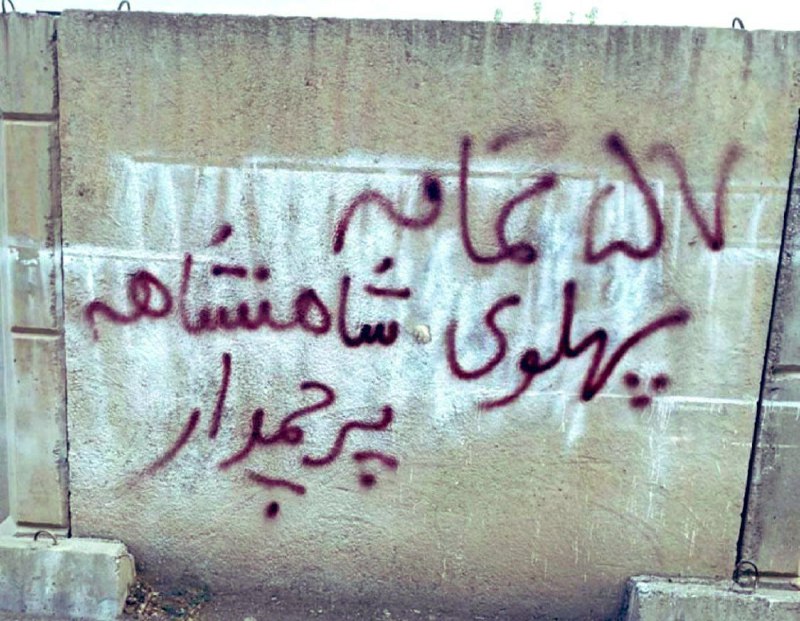 ۵۷ تمامه
پهلوی شاهنشاهه
پرچمدار